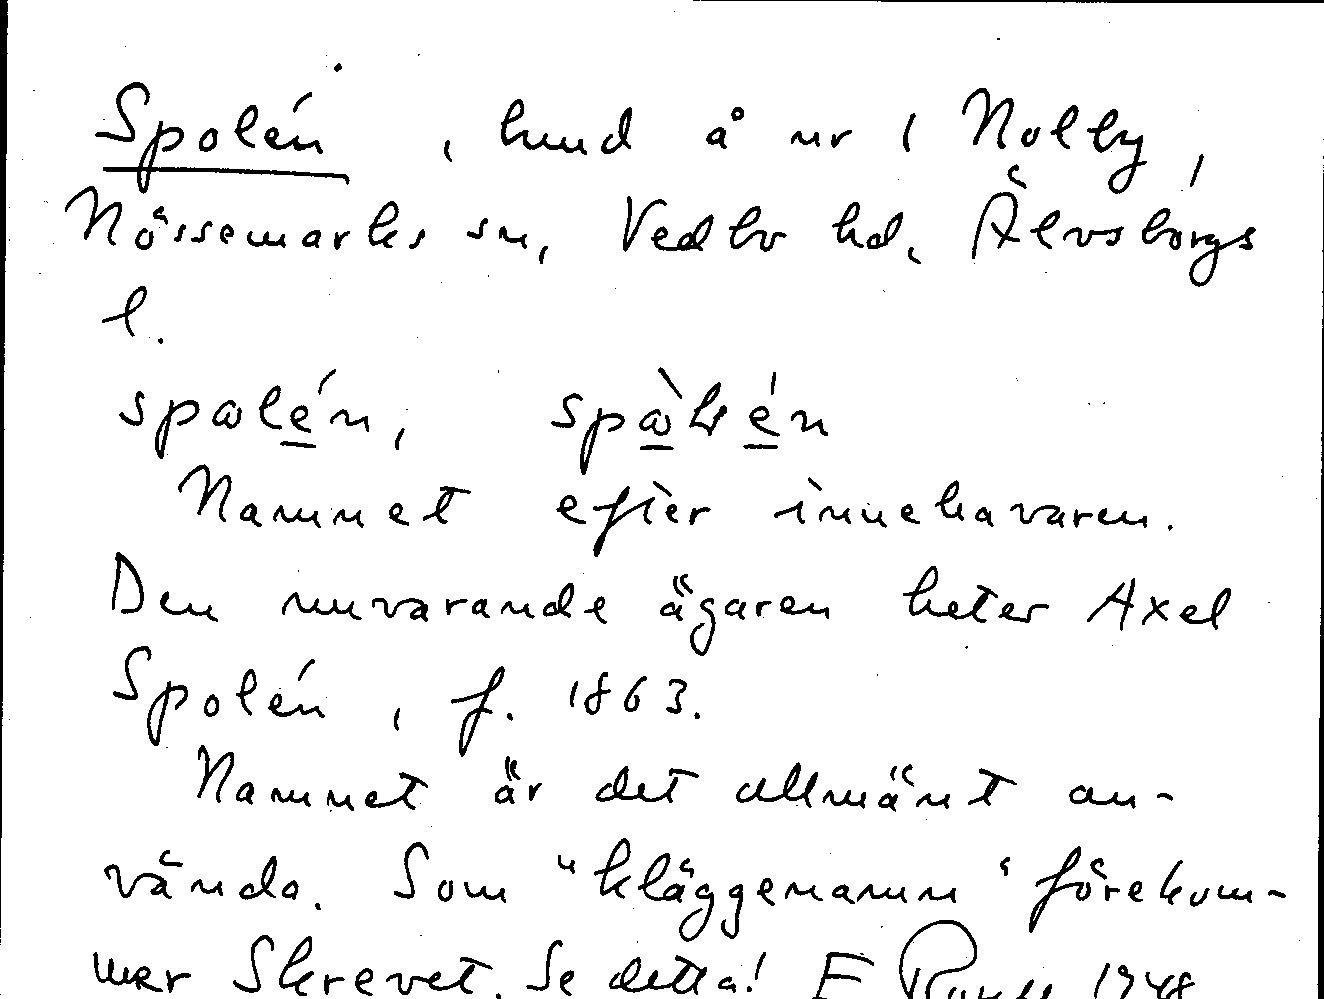 Spolén, hmd å nr 1 Nolby,
Nössemarks sn, Vedbo hd, Älvsborgs
l.
spolén,
Namnet efter innehavaren.
Den nuvarande ägaren heter Axel
Spolén, f. 1863.
Namnet är det allmänt an-
vända. Som "kläggenamn" förekom-
mer Skrevet. Se detta! E 1948